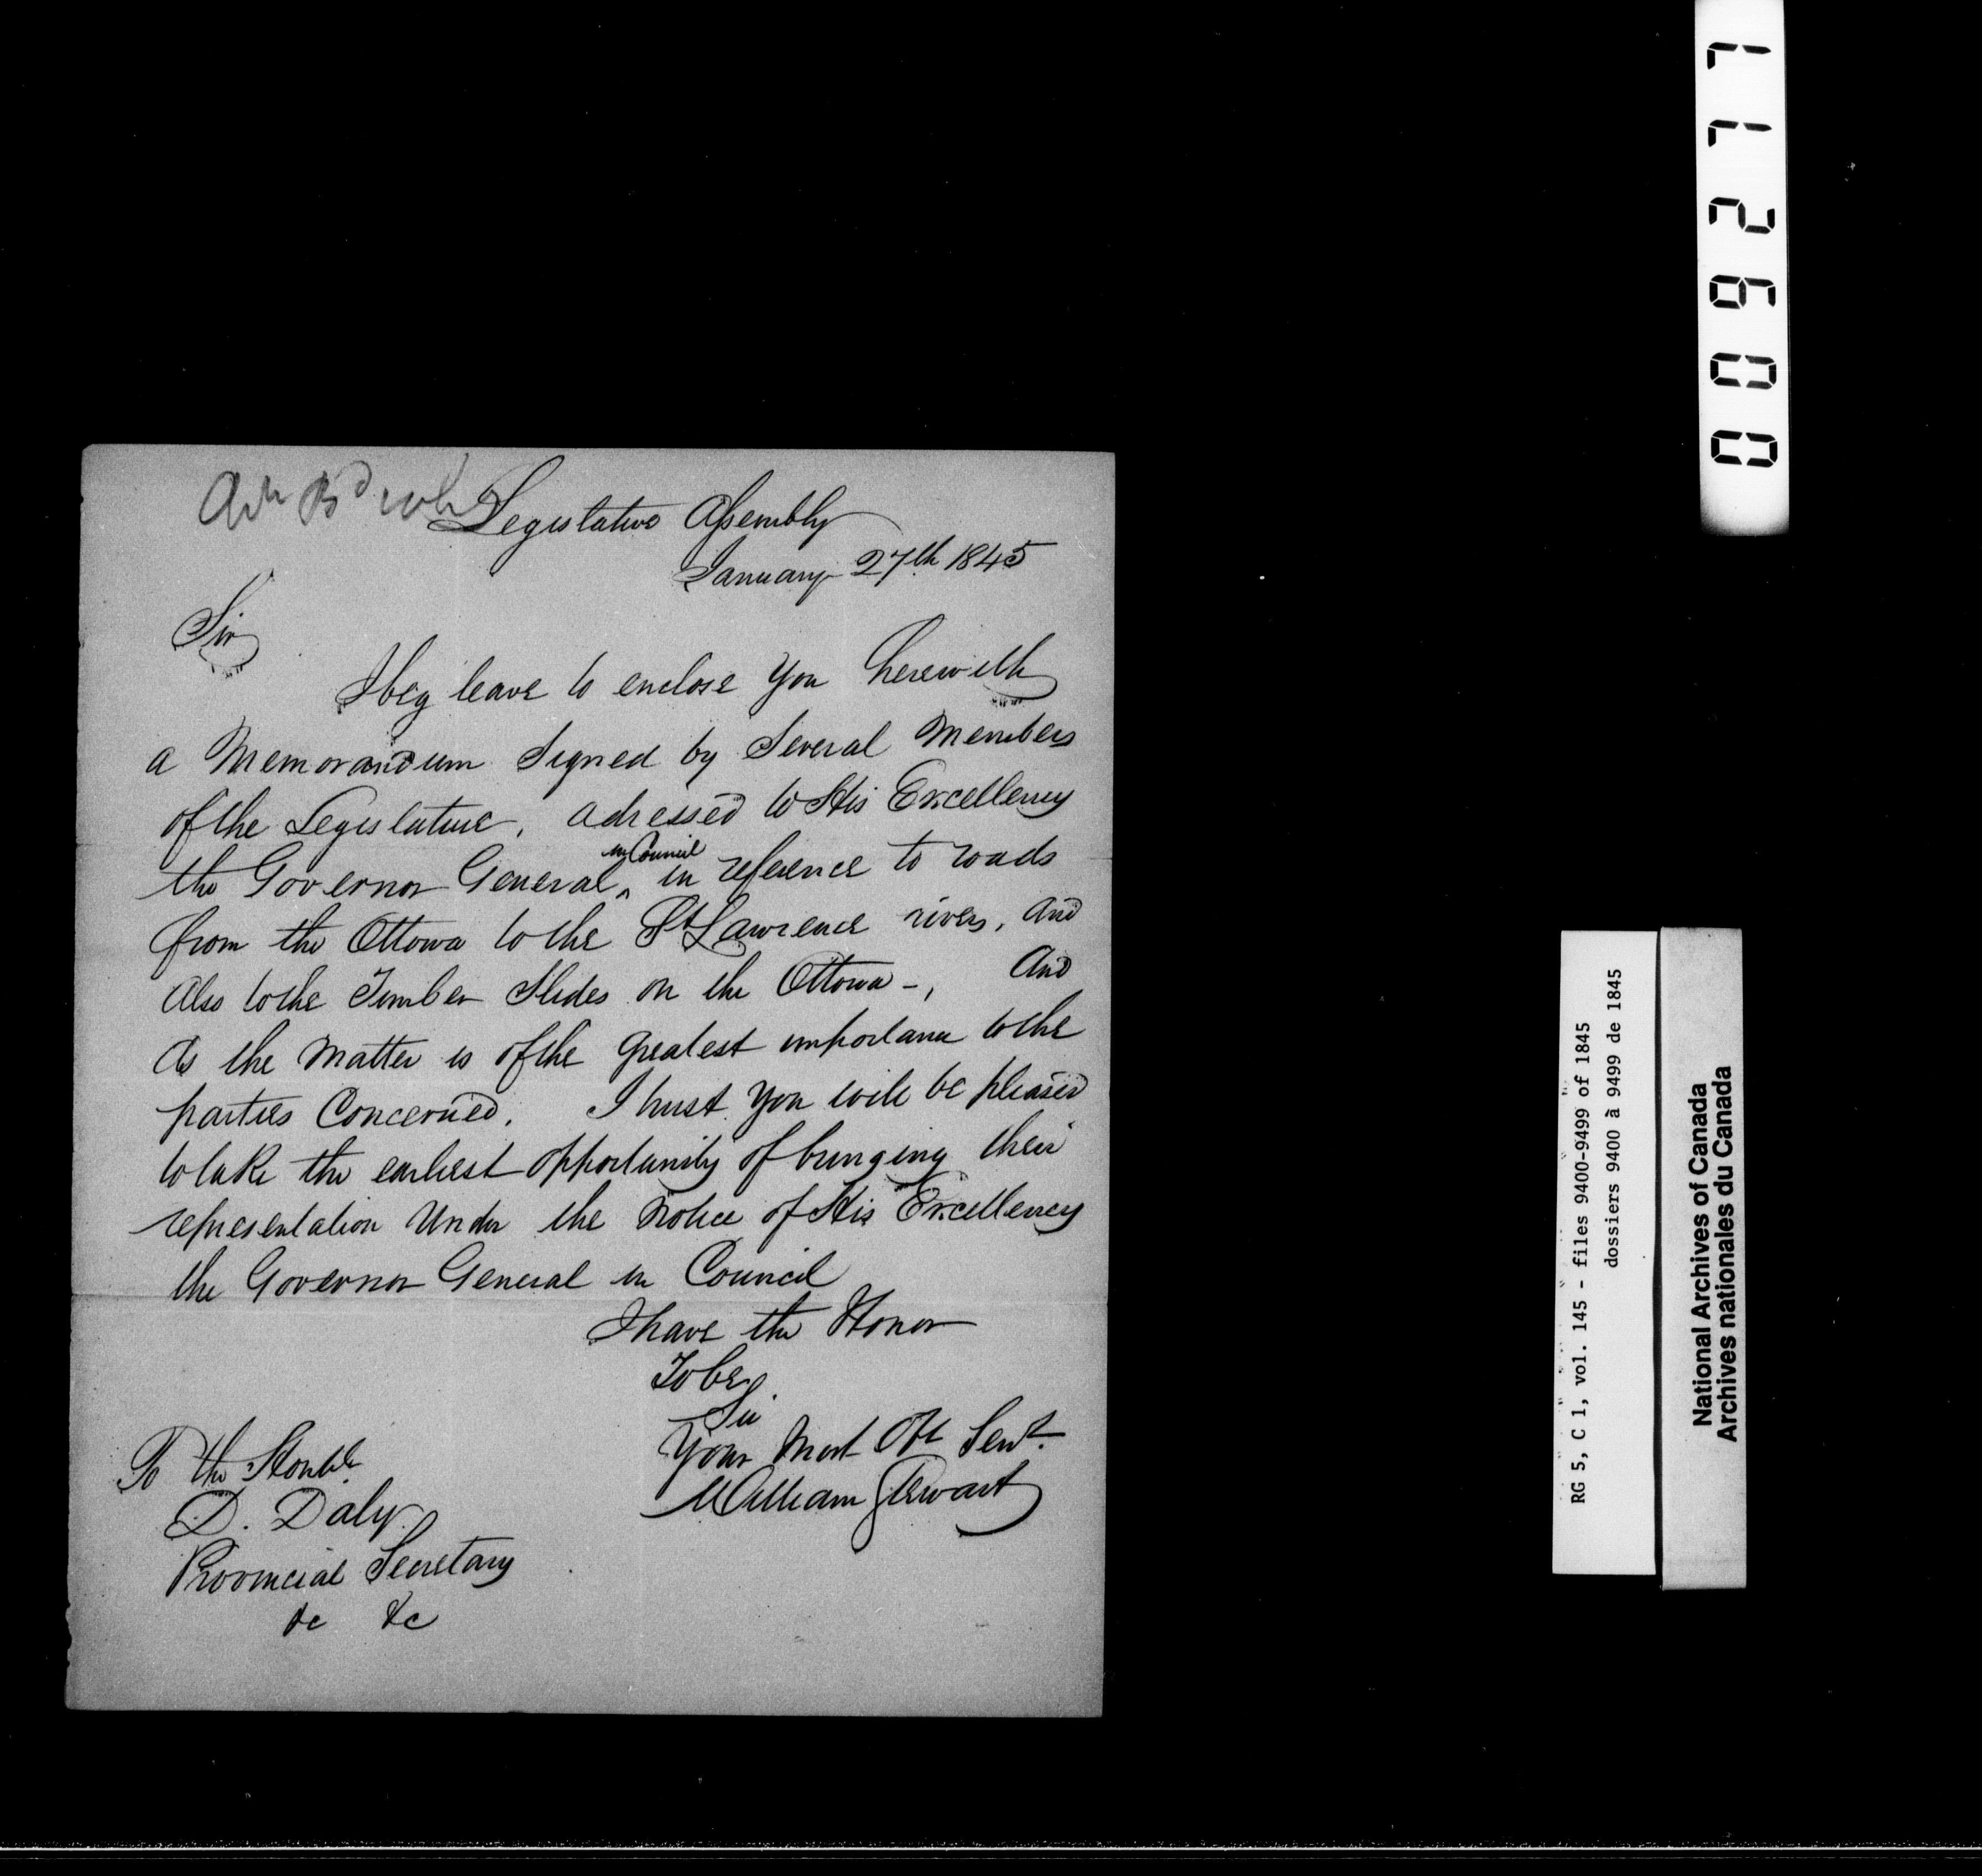 Legislative Assembly
January 27th 1845
Sir
I beg leave to enclose you herewith
a Memorandum signed by Several Members
of the Legislature, adressed to His Excellency
the Governor General ^ in Council in reference to roads
from the Ottowa to the St Lawrence rivers, and
Also to the Timber Slides on the Ottowa -, And
As the Matter is of the greatest importance to the
parties Concerned. I trust you will be pleased
to take the earliest opportunity of bringing their
representation Under the Notice of His Excellency
the Governor General in Council
I have the Honor
To be
Sir
Your Most Obt Servt.
William Stewart
To the Honble
D. Daly
Provincial Secretary
&c &c
RG 5, C 1, vol. 145 - files 9400-9499 of 1845
dossiers 9400 à 9499 de 1845
National Archives of Canada
Archives nationales du Canada